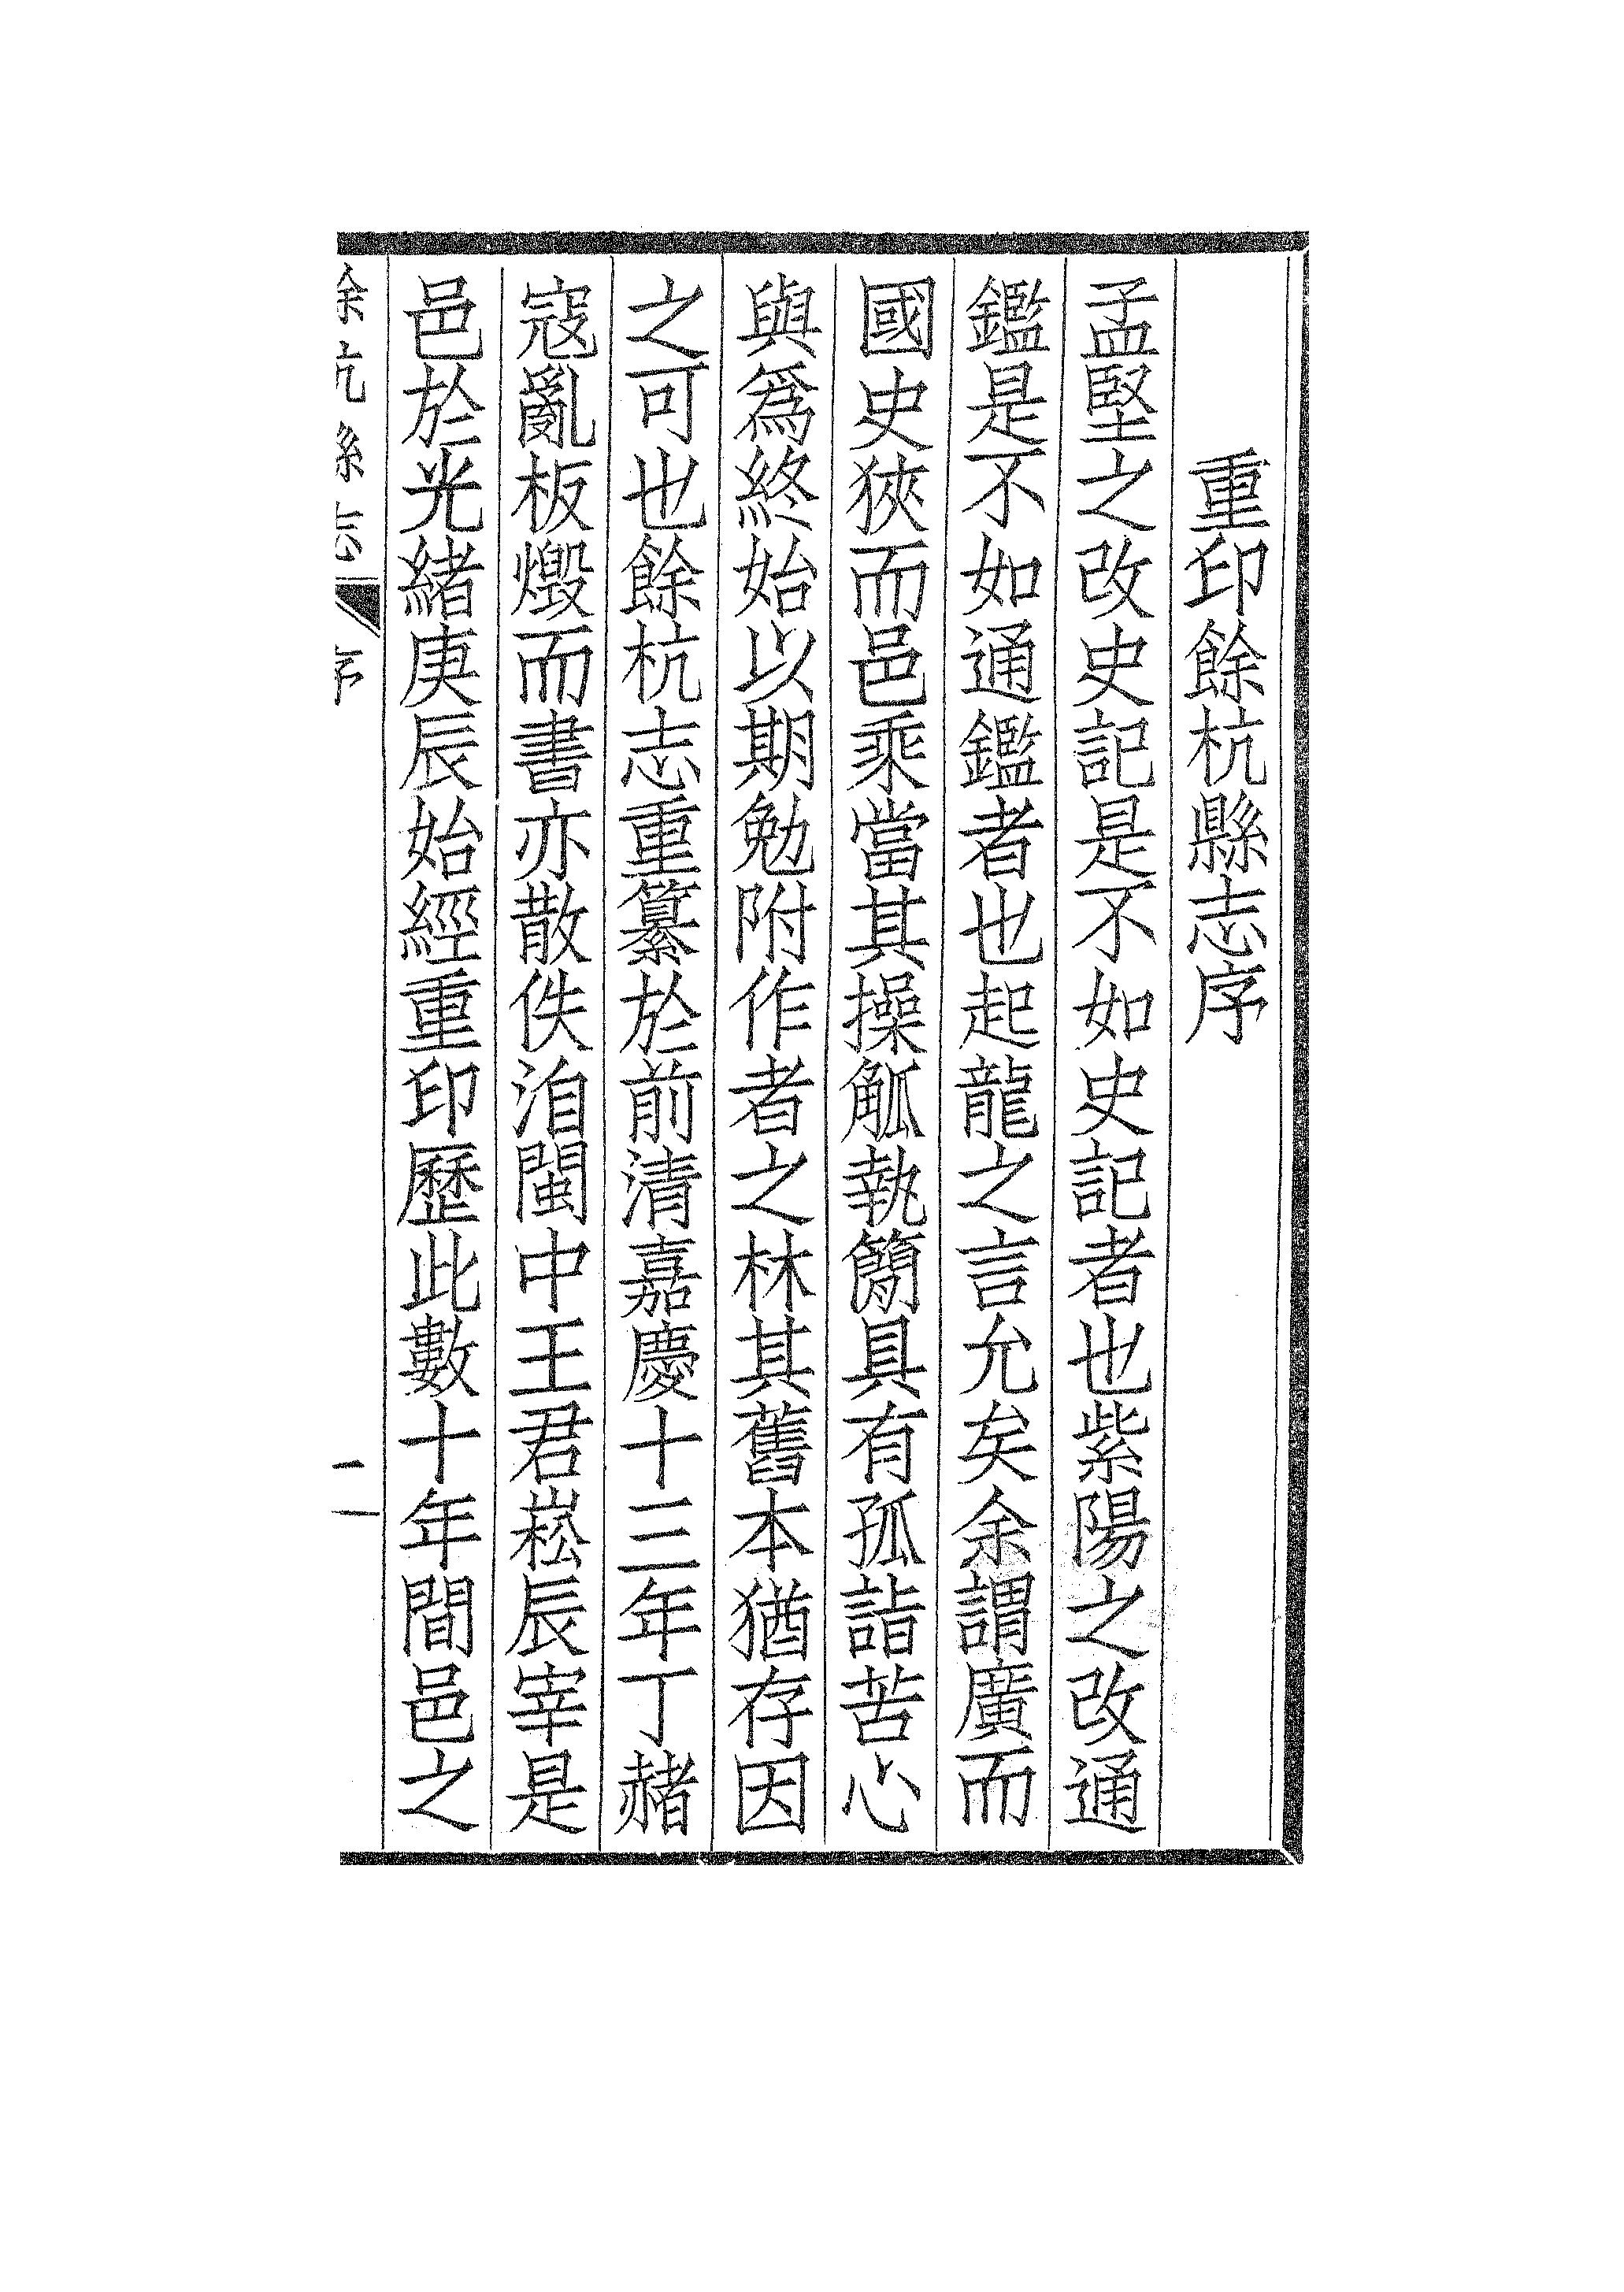 重印餘杭縣志序
孟堅之改史記是不如史記者也紫陽之改通
鑑是不如通鑑者也起龍之言允矣余謂廣而
國史狹而邑乘當其操觚執簡具有孤詣苦心
與爲終始以期勉附作者之林其舊本猶存因
之可也餘杭志重纂於前清嘉慶十三年丁赭
寇亂板燬而書亦散佚洎閩中王君崧辰宰是
邑於光緒庚辰始經重印歷此數十年間邑之
餘杭縣志 序 一